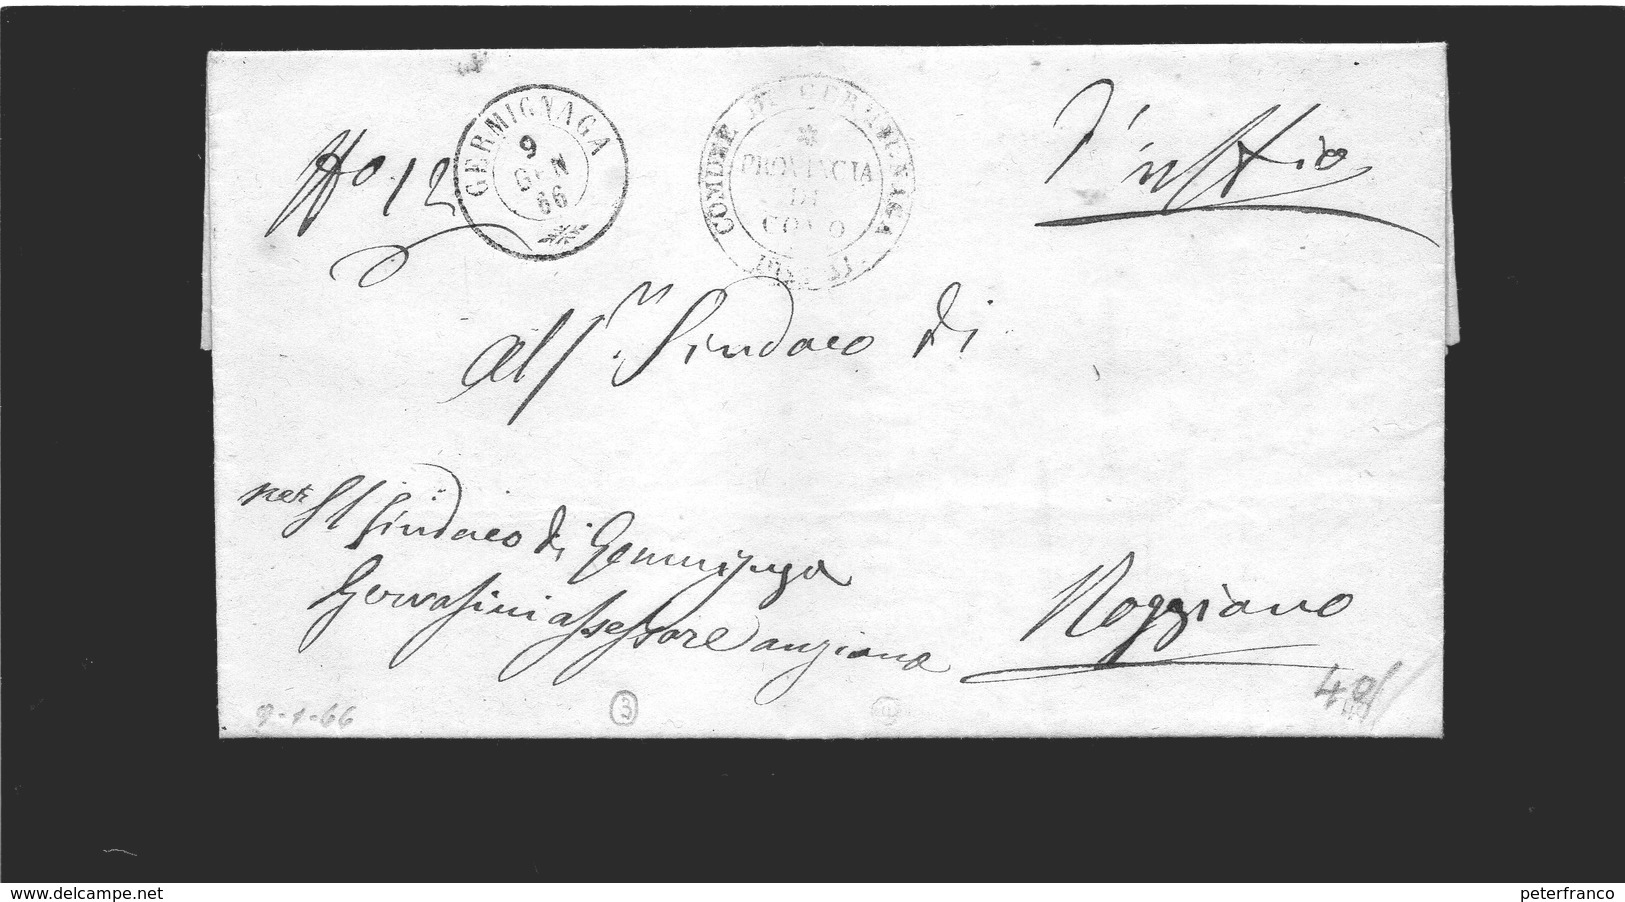 No 12
GERMIGNAGA
9
GEN
66
COMUNE DI GERMIGNAGA
PROVINCIA
DI
COMO
d'uffizio
Al Sr. Sindaco di
per Il Sindaco di Germignaga
Gervasini assessore anziano
Roggiano
9-1-66
3
delcampe.net
peterfranco